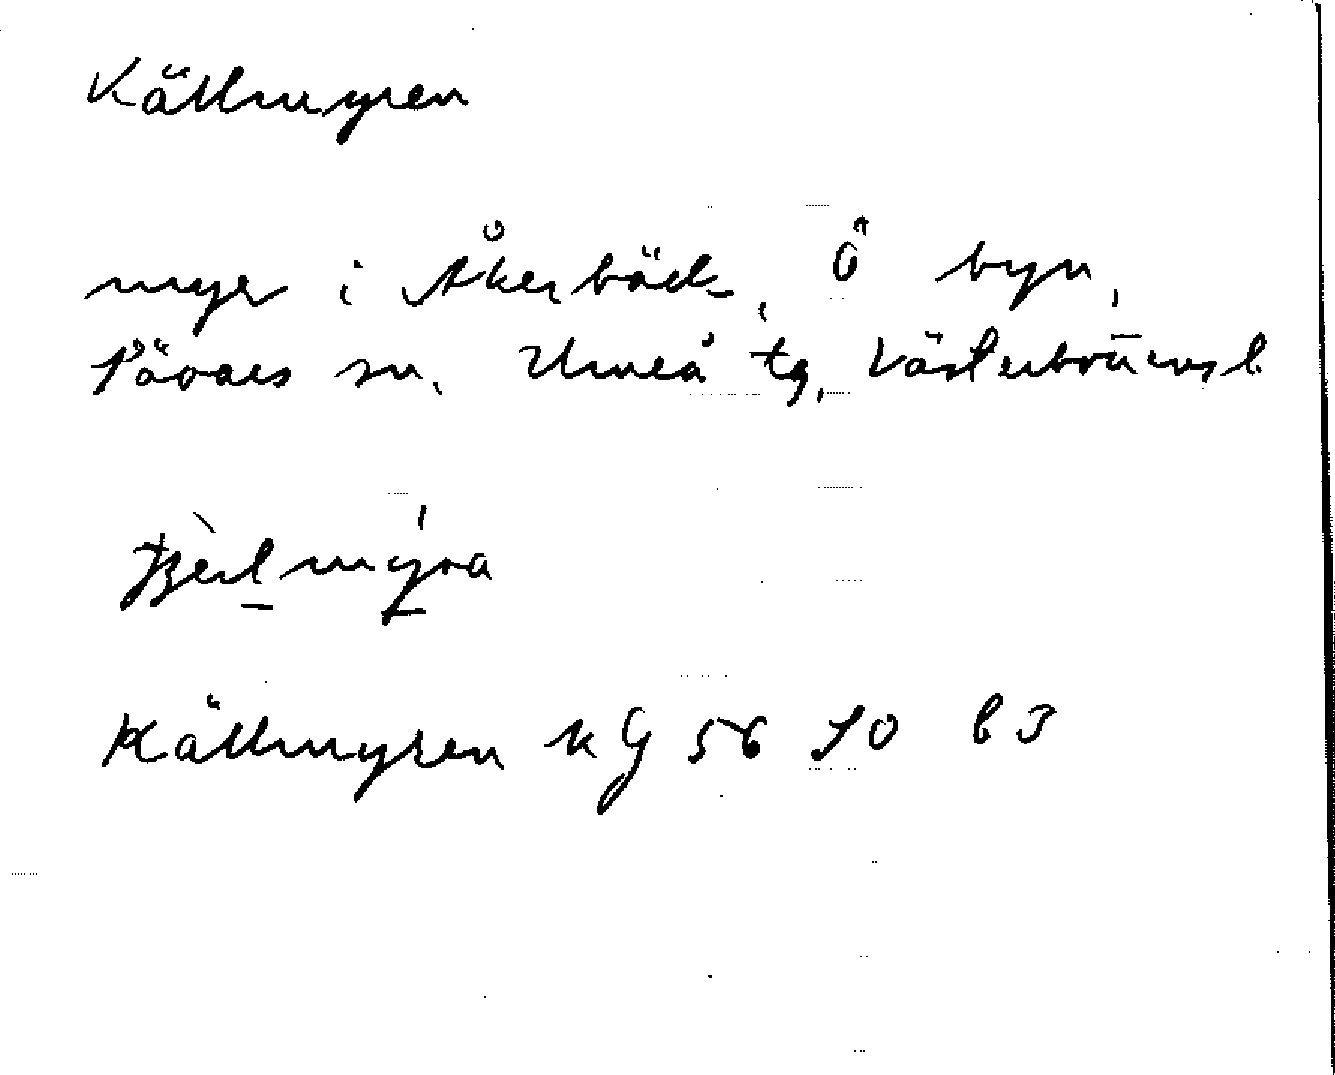 Källmyren
myr i Åkerbäck, Ö byn,
Sävars sn. Umeå tg, Västerbottens l.
Källmyren KG 56 70 b3